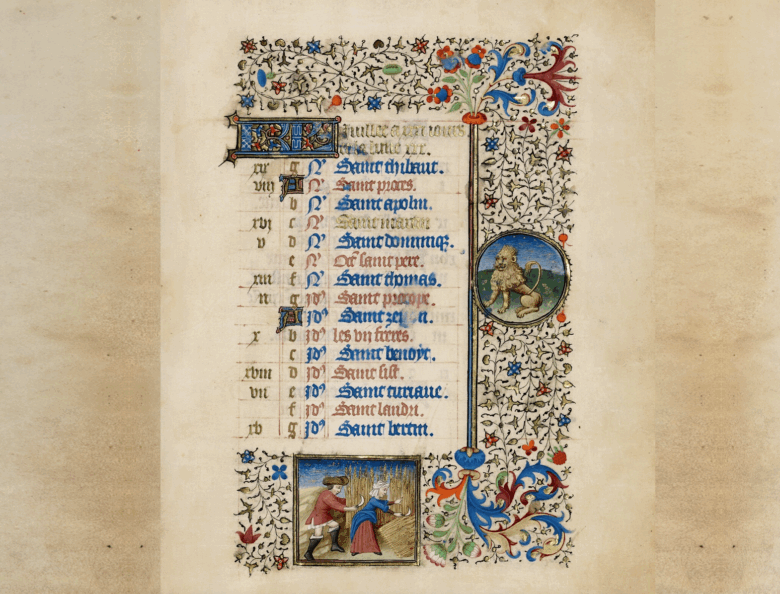 KL Juillet a xxxi iours
lune xxx.
xix g N Saint thibaut.
viii A N Saint proces.
b N Saint apolin.
xvi c N Saint martin
v d N Saint dominiq.
e N Oct saint pere.
xiii f N Saint thomas.
ii g Id Saint procope.
A Id Saint
x b Id les vii freres.
c Id Saint benoyt.
xviii d Id Saint sist.
vii e Id Saint turiaue.
f Id Saint landri.
xv g Id Saint bertin.